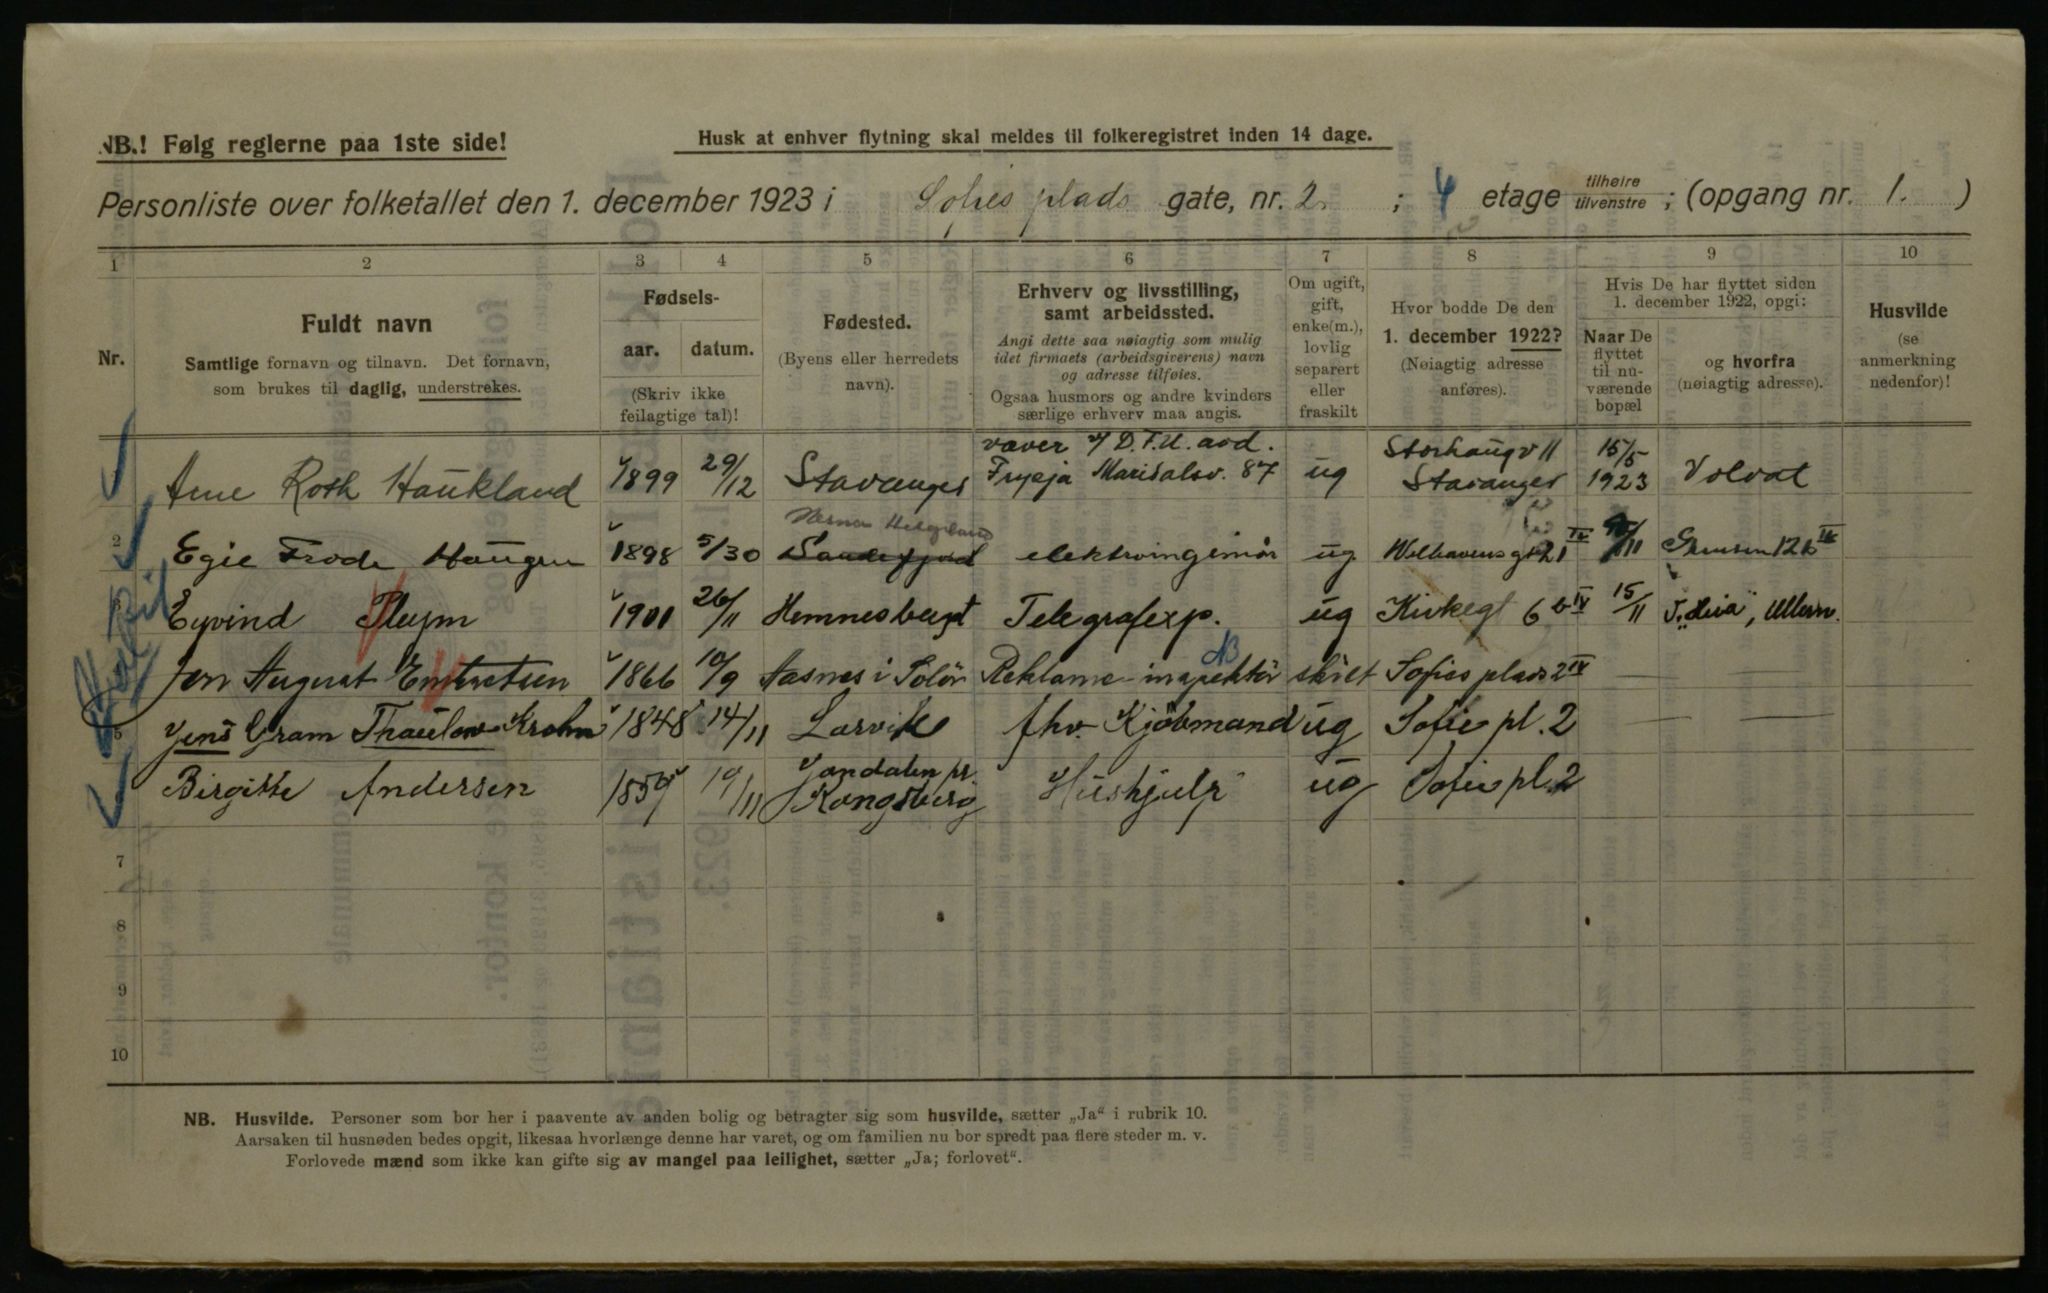 NB.! Følg reglerne paa 1ste side!
Husk at enhver flytning skal meldes til folkeregistret inden 14 dage.
Personliste over folketallet den 1. december 1923 i Sofies plads gate, nr. 2. ; 4 etage tilhøire tilvenstre ; (opgang nr. 1. )
1 2 3 4 5 6 7 8 9 10
Nr.
Fuldt navn
Samtlige fornavn og tilnavn. Det fornavn,
som brukes til daglig, understrekes.
Fødsels-
aar. datum.
(Skriv ikke
feilagtige tal)!
Fødested.
(Byens eller herredets
navn).
Erhverv og livsstilling,
samt arbeidssted.
Angi dette saa nøiagtig som mulig
idet firmaets (arbeidsgiverens) navn
og adresse tilføies.
Ogsaa husmors og andre kvinders
særlige erhverv maa angis.
Om ugift,
gift,
enke(m.),
lovlig
separert
eller
fraskilt
Hvor bodde De den
1. december 1922?
(Nøiagtig adresse
anføres).
Hvis De har flyttet siden
1. december 1922, opgi:
Naar De
flyttet
til nu-
værende
bopæl
og hvorfra
(nøiagtig adresse).
Husvilde
(se
anmerkning
nedenfor)!
Arne Roth Haukland 1899 29/12 Stavanger væver v/ D.F.U. avd. Frysja Maridalsv. 87 ug Storhaugv 11 Stavanger 15/5 1923 Volvat
2 Egil Frode Haugen 1898 5/30 Helgeland Sandefjord elektroingeniør ug Welhavensgt 21 IV /11 Grensen 12 b IV
3 Eyvind Pleym 1901 26/11 Hemnesberget Telegrafexp. ug Kirkegt 6 b IV 15/11 "Heia", Ullern.
Jon August Embretsen 1866 10/9 Aasnes i Solør Reklame-inspektør NB skilt Sofies plads 2 IV — —
5 Jens Gram Thaulow Krohn 1848 14/11 Larvik fhv. Kjøbmand ug Sofie pl. 2 — —
Birgitte Andersen 1859 19/11 Jondalen pr. Kongsberg Hushjelp ug Sofie pl. 2
7
8
9
10
NB. Husvilde. Personer som bor her i paavente av anden bolig og betragter sig som husvilde, sætter „Ja“ i rubrik 10.
Aarsaken til husnøden bedes opgit, likesaa hvorlænge denne har varet, og om familien nu bor spredt paa flere steder m. v.
Forlovede mænd som ikke kan gifte sig av mangel paa leilighet, sætter „Ja; forlovet“.